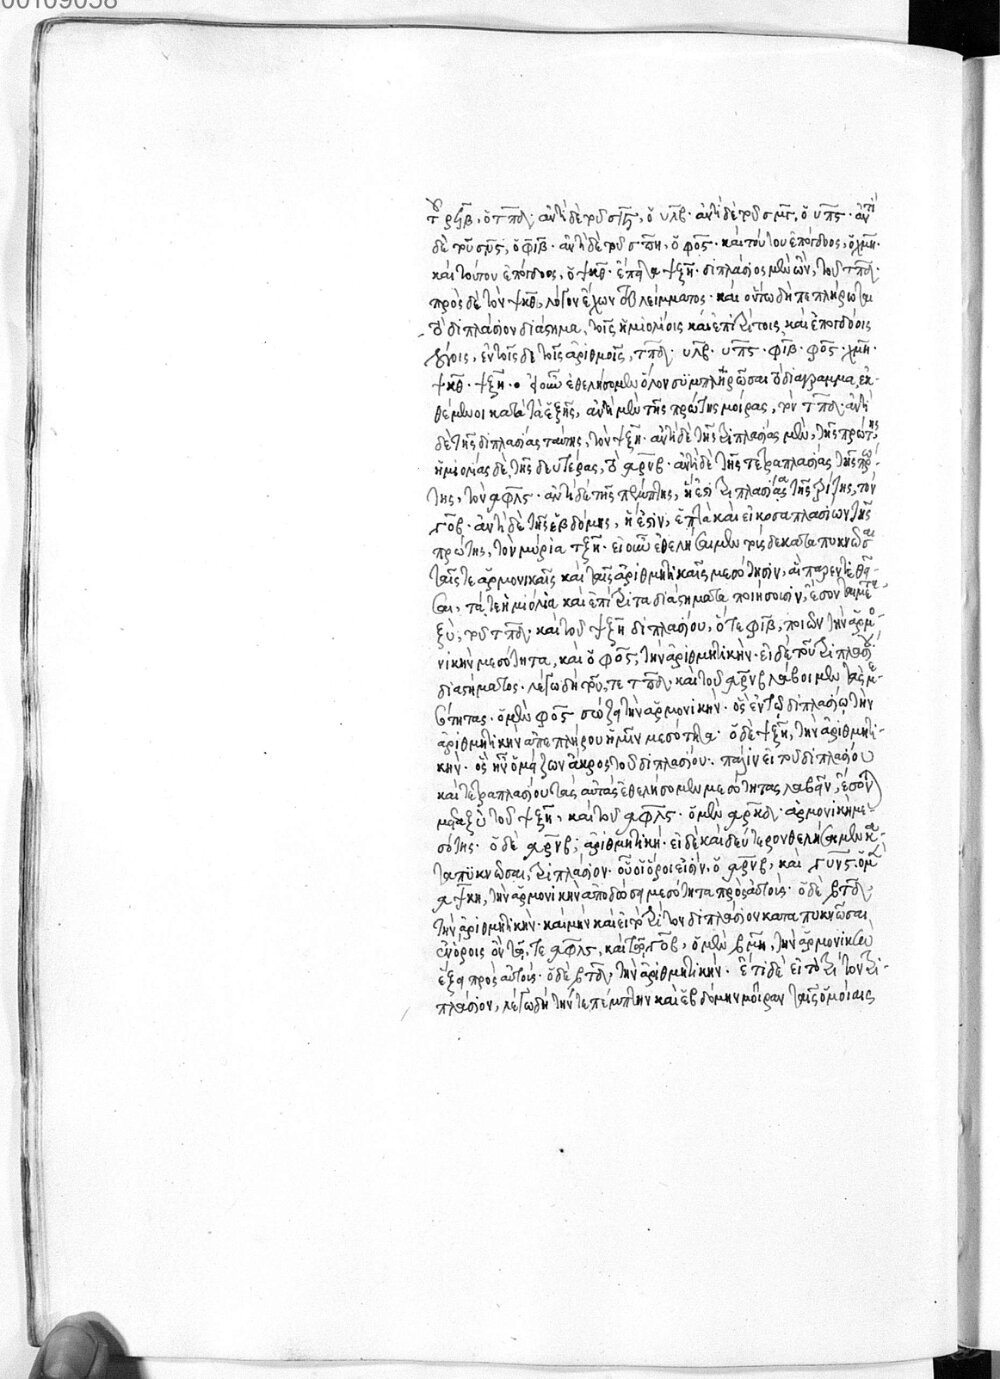 00109058
τοῦ ρϟβ, ὁ τπδ· ἀντὶ δὲ τοῦ σιϛ, ὁ υλβ· ἀντὶ δὲ τοῦ σμγ, ὁ υπϛ· ἀντὶ
δὲ τοῦ σνϛ, ὁ φιβ· ἀντὶ δὲ τοῦ σπη, ὁ φοϛ· καὶ τούτου ἐπόγδοος, ὁ χμη·
καὶ τούτου ἐπόγδοος, ὁ ψκθ· εἶτα ψξη· διπλάσιος μὲν ὢν, τοῦ τπδ·
πρὸς δὲ τὸν ψκθ, λόγον ἔχων τοῦ λείμματος· καὶ οὕτω δὴ πεπλήρωται
τὸ διπλάσιον διάστημα, τοῖς ἡμιολίοις καὶ ἐπιτρίτοις, καὶ ἐπογδόοις
λόγοις, ἐν τοῖσδε τοῖς ἀριθμοῖς, τπδ· υλβ· υπϛ· φιβ· φοϛ· χμη·
ψκθ· ψξη· εἰ οὖν ἐθελήσομεν ὅλον συμπληρῶσαι τὸ διάγραμμα, ἐκ-
θέμενοι κατὰ τὰ ἑξῆς, ἀντὶ μὲν τῆς πρώτης μοίρας, τὸν τπδ· ἀντὶ
δὲ τῆς διπλασίας ταύτης, τὸν ψξη· ἀντὶ δὲ τῆς τριπλασίας μὲν, τῆς πρώτης
ἡμιολίας δὲ τῆς δευτέρας, τὸν ͵αρνβ· ἀντὶ δὲ τῆς τετραπλασίας τῆς πρώ-
της, τὸν ͵αφλϛ· ἀντὶ δὲ τῆς πέμπτης, ἥ ἐστι τριπλασία τῆς τρίτης, τὸν
͵γυνϛ· ἀντὶ δὲ τῆς ἑβδόμης, ἥ ἐστιν, ἑπτὰ καὶ εἰκοσαπλασίων τῆς
πρώτης, τὸν μύρια τξη· εἰ οὖν ἐθελήσαιμεν τρὶς δὲ καταπυκνῶσαι
ταῖς τε ἁρμονικαῖς καὶ ταῖς ἀριθμητικαῖς μεσότησιν, αἳ παρεντεθεῖ-
σαι, τά τε ἡμιόλια καὶ ἐπίτριτα διαστήματα ποιήσουσιν, ἔσονται με-
ξὺ, τοῦ τπδ· καὶ τοῦ ψξη διπλασίου, ὅ τε φιβ, ποιῶν τὴν ἁρμο-
νικὴν μεσότητα, καὶ ὁ φοϛ, τὴν ἀριθμητικήν· εἰ δὲ τοῦ τριπλασίου
διαστήματος· λέγω δὴ τοῦ, τε τπδ· καὶ τοῦ ͵αρνβ λάβοιμεν τὰς με-
σότητας· ὁ μὲν φοϛ σώζει τὴν ἁρμονικήν· ὃς ἐν τῷ διπλασίῳ τὴν
ἀριθμητικὴν ἀπεπλήρου ἡμῖν μεσότητα· ὁ δὲ ψξη, τὴν ἀριθμητι-
κήν· ὃς ἦν ὁ μείζων ἄκρος τοῦ διπλασίου· πάλιν εἰ τοῦ διπλασίου
καὶ τετραπλασίου τὰς αὐτὰς ἐθελήσομεν μεσότητας λαβεῖν, ἔσονται
μεταξὺ τοῦ ψξη, καὶ τοῦ ͵αφλϛ· ὁ μὲν ͵αρκδ· ἁρμονικὴ με-
σότης· ὁ δὲ ͵αρνβ, ἀριθμητική· εἰ δὲ καὶ δεύτερον θελήσαιμεν κα-
ταπυκνῶσαι, τριπλάσιον· οὗ οἱ ὅροι εἰσὶν, ὁ ͵αρνβ, καὶ ͵γυνϛ· ὁ μὲν
͵αψκη, τὴν ἁρμονικὴν ἀποδώσει μεσότητα πρὸς αὐτούς· ὁ δὲ ͵βτδ,
τὴν ἀριθμητικήν· καὶ μὴν καὶ εἰ τὸ τρίτον διπλάσιον καταπυκνῶσαι
ἐν ὅροις ὂν τῷ, τε ͵αφλϛ, καὶ τῷ ͵γοβ, ὁ μὲν ͵βμη, τὴν ἁρμονικὴν
ἕξει πρὸς αὐτούς· ὁ δὲ ͵βτδ, τὴν ἀριθμητικήν· ἔτι δὲ εἰ τὸ τρίτον τρι-
πλάσιον, λέγω δὴ τήν τε πέμπτην καὶ ἑβδόμην μοῖραν ταῖς ὁμοίαις